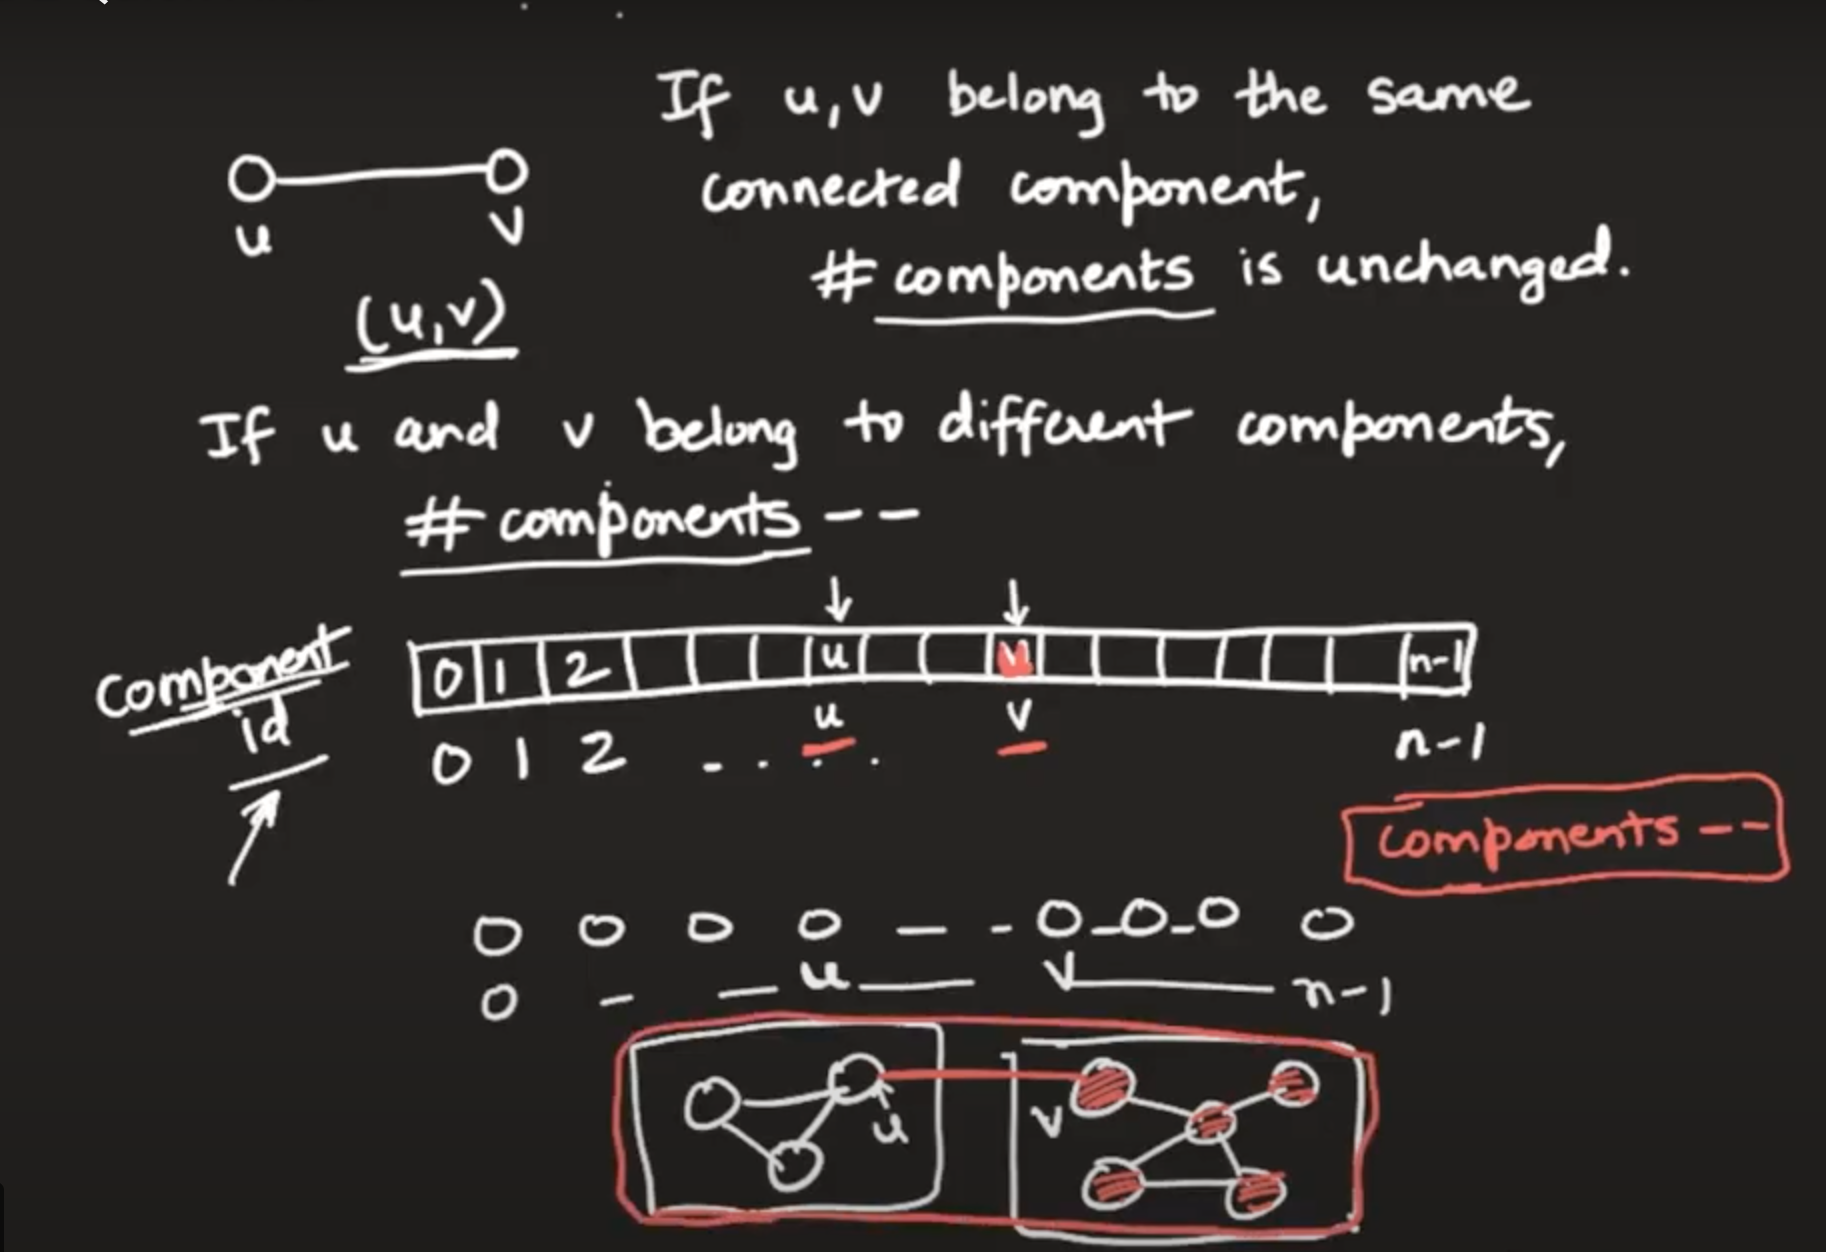 If u,v belong to the same
connected component,
u v
# components is unchanged.
(u,v)
If u and v belong to different components,
# components --
Component id
0 1 2 u v n-1
0 1 2 .... u v n-1
components --
0 0 0 0 - - 0-0-0 0
0 - - u - v - n-1
u v